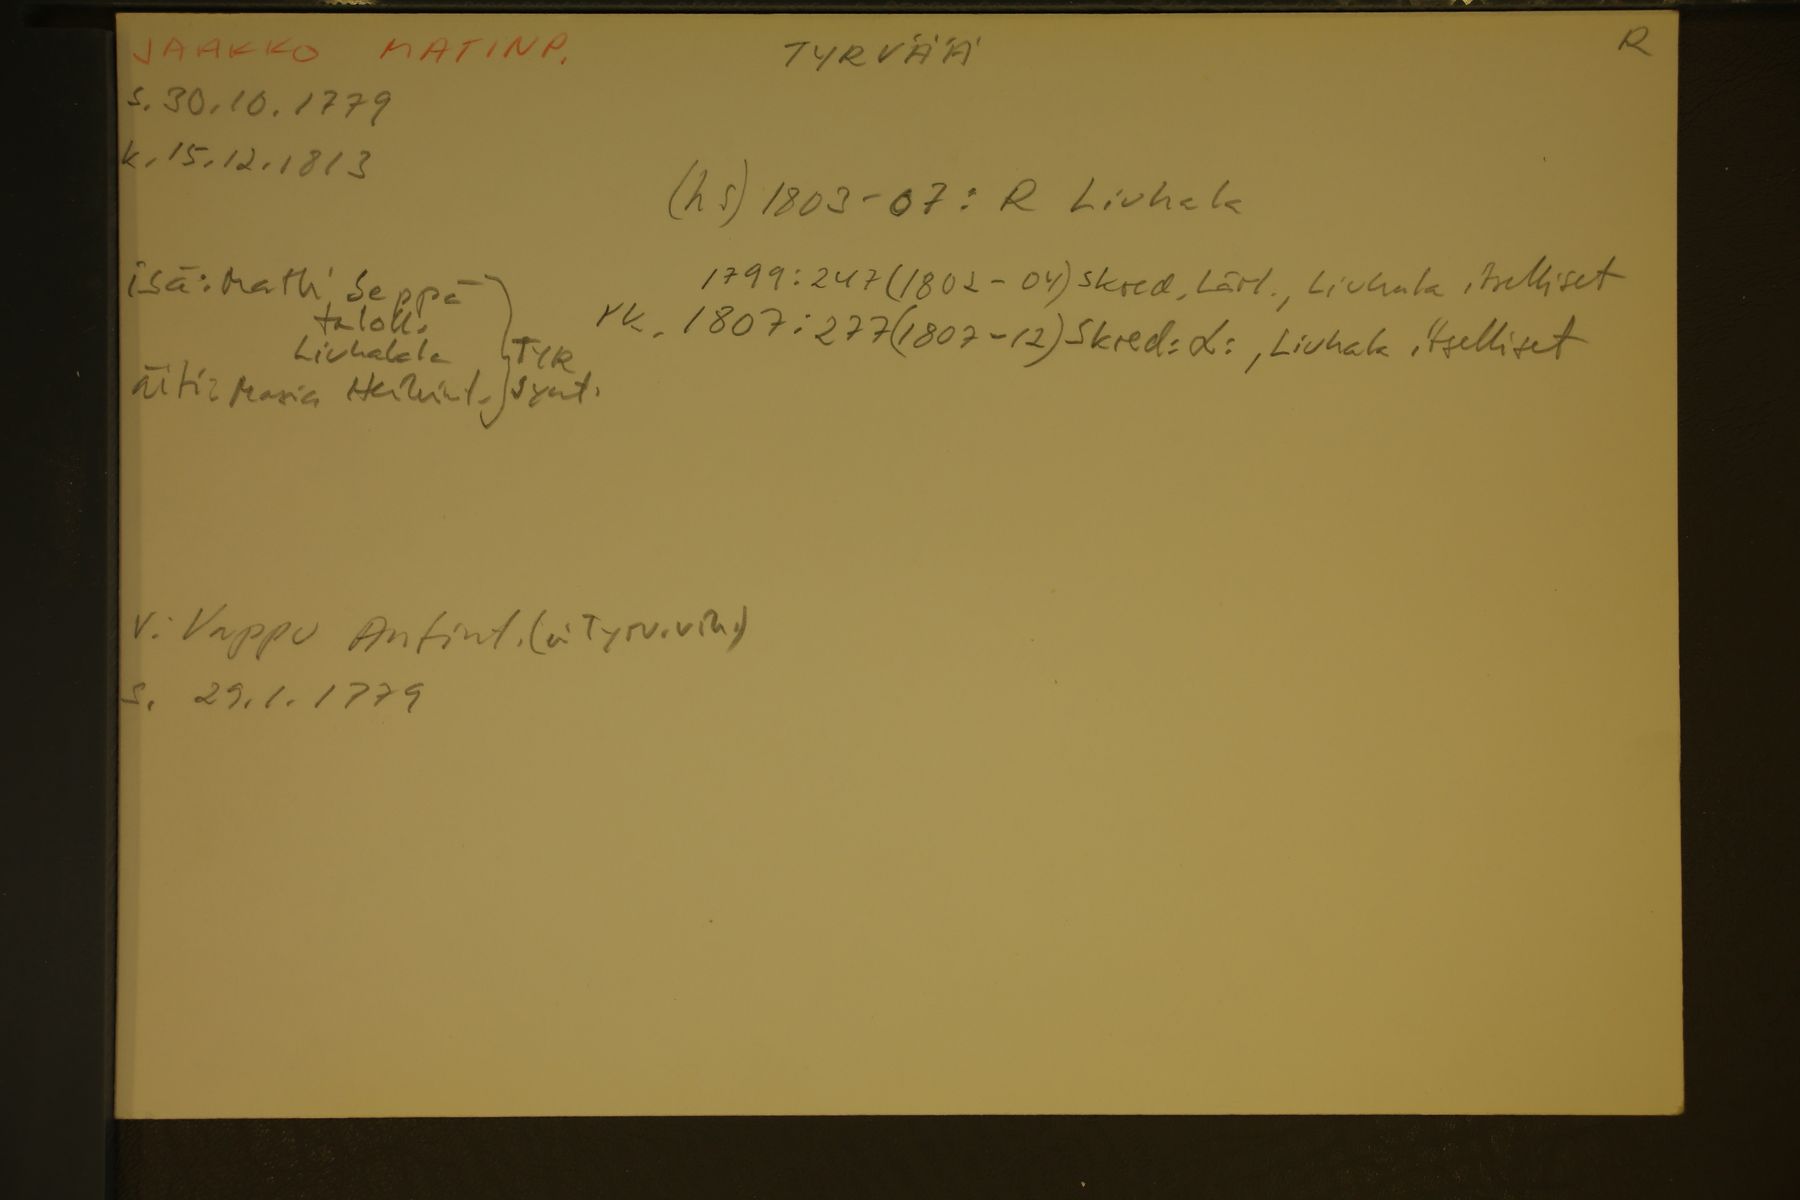 JAAKKO MATINP. TYRVÄÄ R
s. 30.10.1779
k. 15.12.1813
(hs) 1803-07: R Liuhala
isä: Matti Seppä
taloll.
Liuhalala
äiti: Maria Heikint. TYR synt.
1799: 247 (1802-04) Skred. Lärl., Liuhala itselliset
rk. 1807: 277 (1807-12) Skred: L:, Liuhala itselliset
v: Vappu Antint. (ei Tyrv. vih.)
s. 29.1.1779